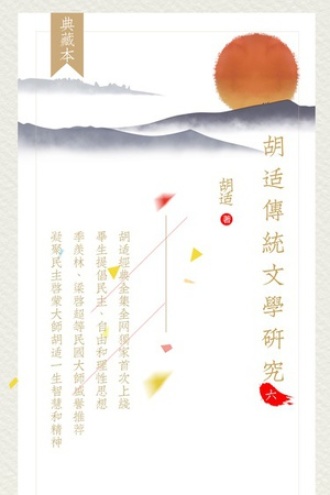 典藏本
胡适傳統文學研究
六
胡适
著
胡适經典全集全网獨家首次上綫
畢生提倡民主、自由和理性思想
季羨林、梁啓超等民國大師感譽推荐
凝聚民主啓蒙大師胡适一生智慧和精神